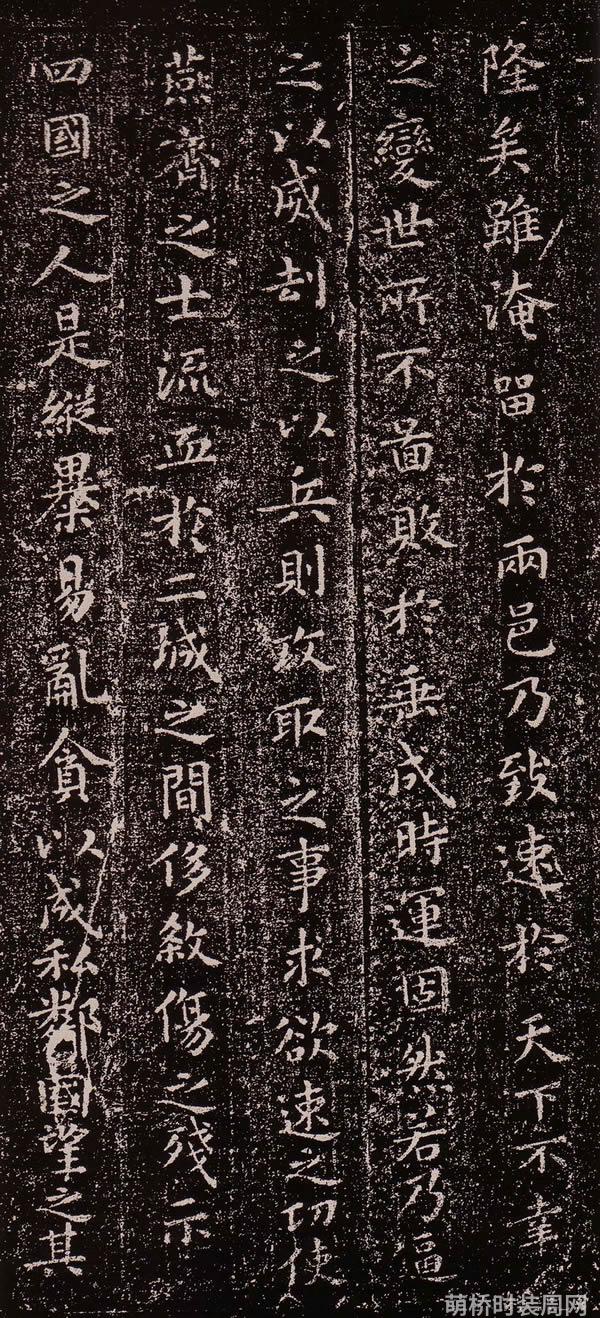 隆矣雖淹留於兩邑乃致速於天下不幸
之變世所不啚敗於垂成時運固然若乃逼
之以威劫之以兵則攻取之事求欲速之功使
燕齊之士流血於二城之間侈煞傷之殘示
四國之人是縱暴易亂貪以成私鄰國望之其
萌桥时装周网